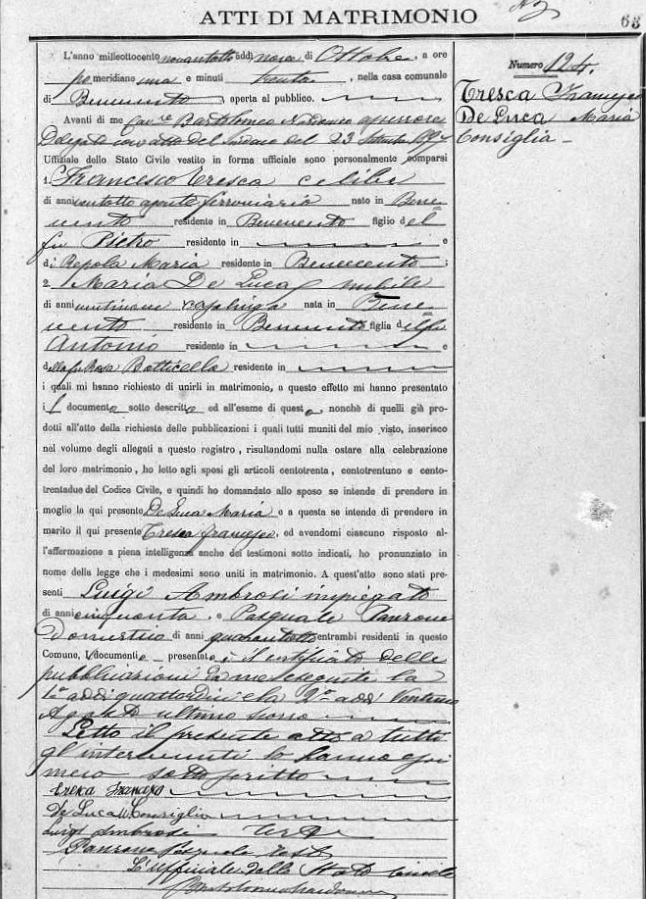 ATTI DI MATRIMONIO
63
L'anno milleottocento novantotto addì nove di Ottobre, a ore
pomeridiane una e minuti trenta, nella casa comunale
di Benevento aperta al pubblico.
Avanti di me Bartolomeo assessore
Delegato con atto del Sindaco del 23 Settembre
Uffiziale dello Stato Civile vestito in forma uffiziale sono personalmente comparsi
1. Francesco Tresca celibe
di anni ventotto agente ferroviario nato in Bene-
vento residente in Benevento figlio del
fu Pietro residente in e
di Repola Maria residente in Benevento;
2. Maria De Luca nubile
di anni ventinove casalinga nata in Bene-
vento residente in Benevento figlia del fu
Antonio residente in e
della fu Rosa Botticella residente in
i quali mi hanno richiesto di unirli in matrimonio, a questo effetto mi hanno presentato
i documento sotto descritto ed all'esame di questo, nonchè di quelli già pro-
dotti all'atto della richiesta delle pubblicazioni i quali tutti muniti del mio visto, inserisco
nel volume degli allegati a questo registro, risultandomi nulla ostare alla celebrazione
del loro matrimonio, ho letto agli sposi gli articoli centotrenta, centotrentuno e cento-
trentadue del Codice Civile, e quindi ho domandato allo sposo se intende di prendere in
moglie la qui presente De Luca Maria e a questa se intende di prendere in
marito il qui presente Tresca Francesco, ed avendomi ciascuno risposto af-
fermazione a piena intelligenza anche dei testimoni sotto indicati, ho pronunziato in
nome della legge che i medesimi sono uniti in matrimonio. A quest'atto sono stati pre-
senti Luigi Ambrosi impiegato
di anni cinquanta e Pasquale Panzone
Domestico di anni quarantotto entrambi residenti in questo
Comune, Il documento presentato è: il certificato delle
pubblicazioni eseguite la
1a addì quattordici e la 2a addì Ventuno
Agosto ultimo scorso
Letto il presente atto a tutti
gl'intervenuti lo hanno con
meco sottoscritto
Tresca Francesco
De Luca M Consiglia
Luigi Ambrosi teste
Panzone Pasquale teste
L'uffiziale dello Stato Civile
Bartolomeo
Numero 124.
Tresca Francesco
De Luca Maria
Consiglia